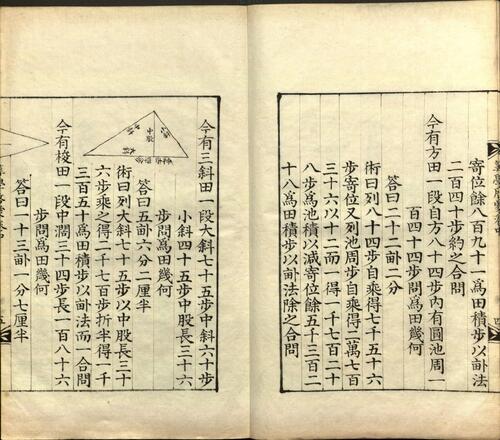 寄位餘八百九十一爲田積步以畝法
二百四十步約之合問
今有方田一段自方八十四步內有圓池周一
百四十四步問爲田幾何
答曰二十二畝二分
術曰列八十四步自乘得七千五十六
步寄位又列池周步自乘得二萬七百
三十六以十二而一得一千七百二十
八步爲池積以減寄位餘五千三百二
十八爲田積步以畝法除之合問
今有三斜田一段大斜七十五步中斜六十步
小斜四十五步中股長三十六
步問爲田幾何
中股
大斜
答曰五畝六分二厘半
術曰列大斜七十五步以中股長三十
六步乘之得二千七百步折半得一千
三百五十爲田積步以畝法而一合問
今有梭田一段中濶三十四步長一百八十六
步問爲田幾何
答曰一十三畝一分七厘半